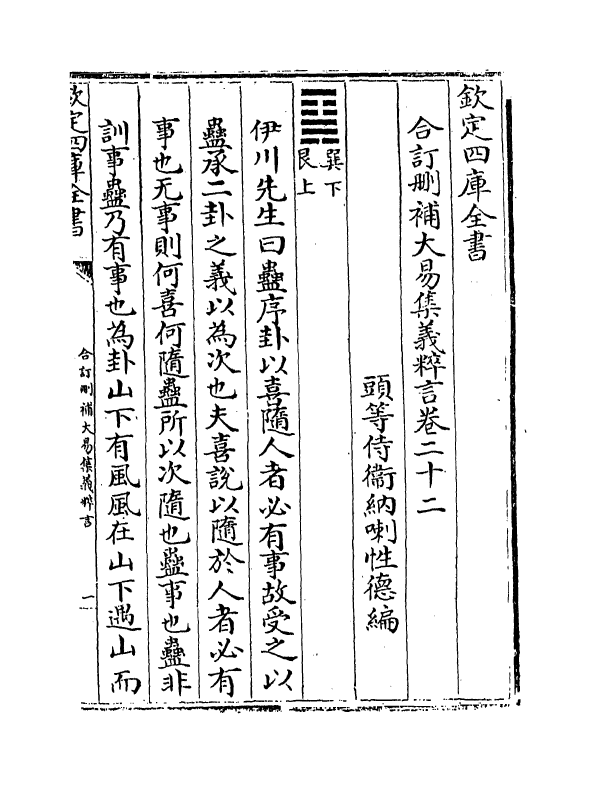 欽定四庫全書
合訂刪補大易集義粹言卷二十二
頭等侍衞納喇性德編
巽下
艮上
伊川先生曰蠱序卦以喜隨人者必有事故受之以
蠱承二卦之義以為次也夫喜說以隨於人者必有
事也无事則何喜何隨蠱所以次隨也蠱事也蠱非
訓事蠱乃有事也為卦山下有風風在山下遇山而
欽定四庫全書
合訂刪補大易集義粹言
一